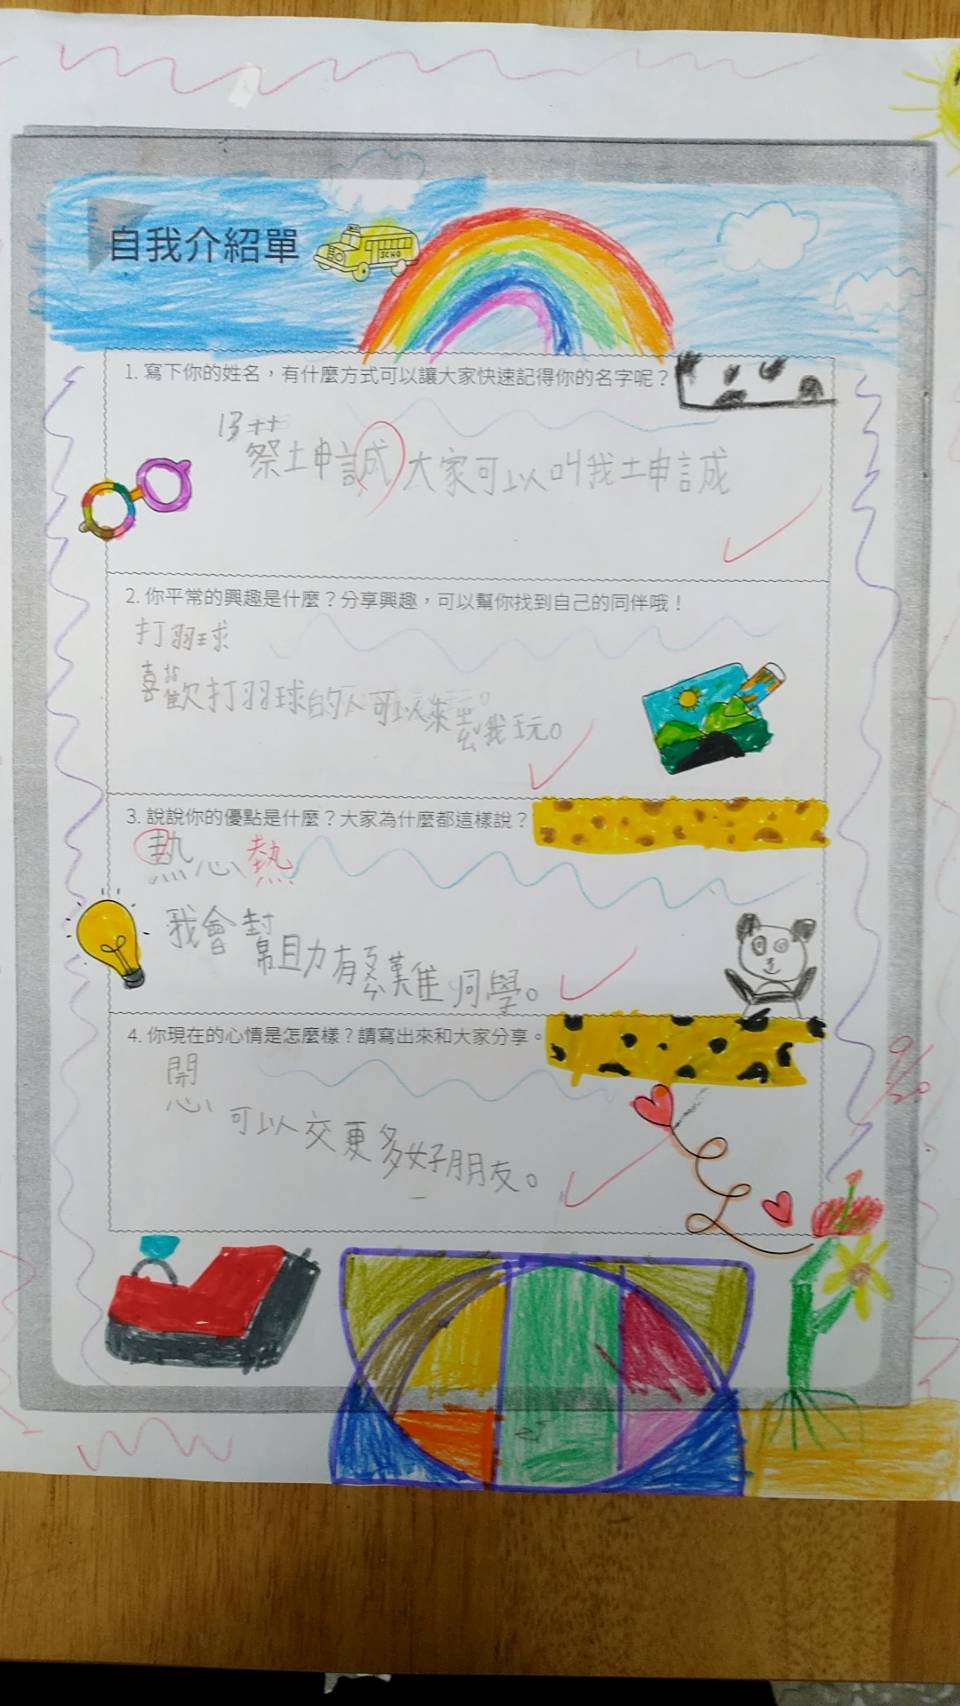 自我介紹單
SCHO
1. 寫下你的姓名，有什麼方式可以讓大家快速記得你的名字呢？
13 蔡坤誠 大家可以叫我坤誠
2. 你平常的興趣是什麼？分享興趣，可以幫你找到自己的同伴哦！
打羽球
喜歡打羽球的人可以來找我玩。
3. 說說你的優點是什麼？大家為什麼都這樣說？
熱心 熱
我會幫助有困難同學。
4. 你現在的心情是怎麼樣？請寫出來和大家分享。
開心
可以交更多好朋友。
9/20